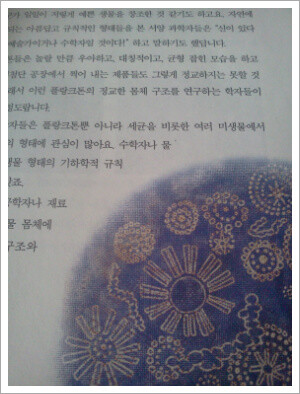 일일이 이렇게 예쁜 생물을 창조한 것 같기도 하고요. 자연에
아름답고 규칙적인 형태들을 본 서양 과학자들은 "신이 있다
예술가이거나 수학자일 것이다!" 하고 말하기도 했답니다.
톤들은 놀랄 만큼 우아하고, 대칭적이고, 균형 잡힌 모습을 하고
첨단 공장에서 찍어 내는 제품들도 그렇게 정교하지는 못할 것
래서 이런 플랑크톤의 정교한 몸체 구조를 연구하는 학자들이
정도랍니다.
자들은 플랑크톤뿐 아니라 세균을 비롯한 여러 미생물에서
형태에 관심이 많아요. 수학자나 물
생물 형태의 기하학적 규칙
수학자나 재료
물 몸체에
구조와